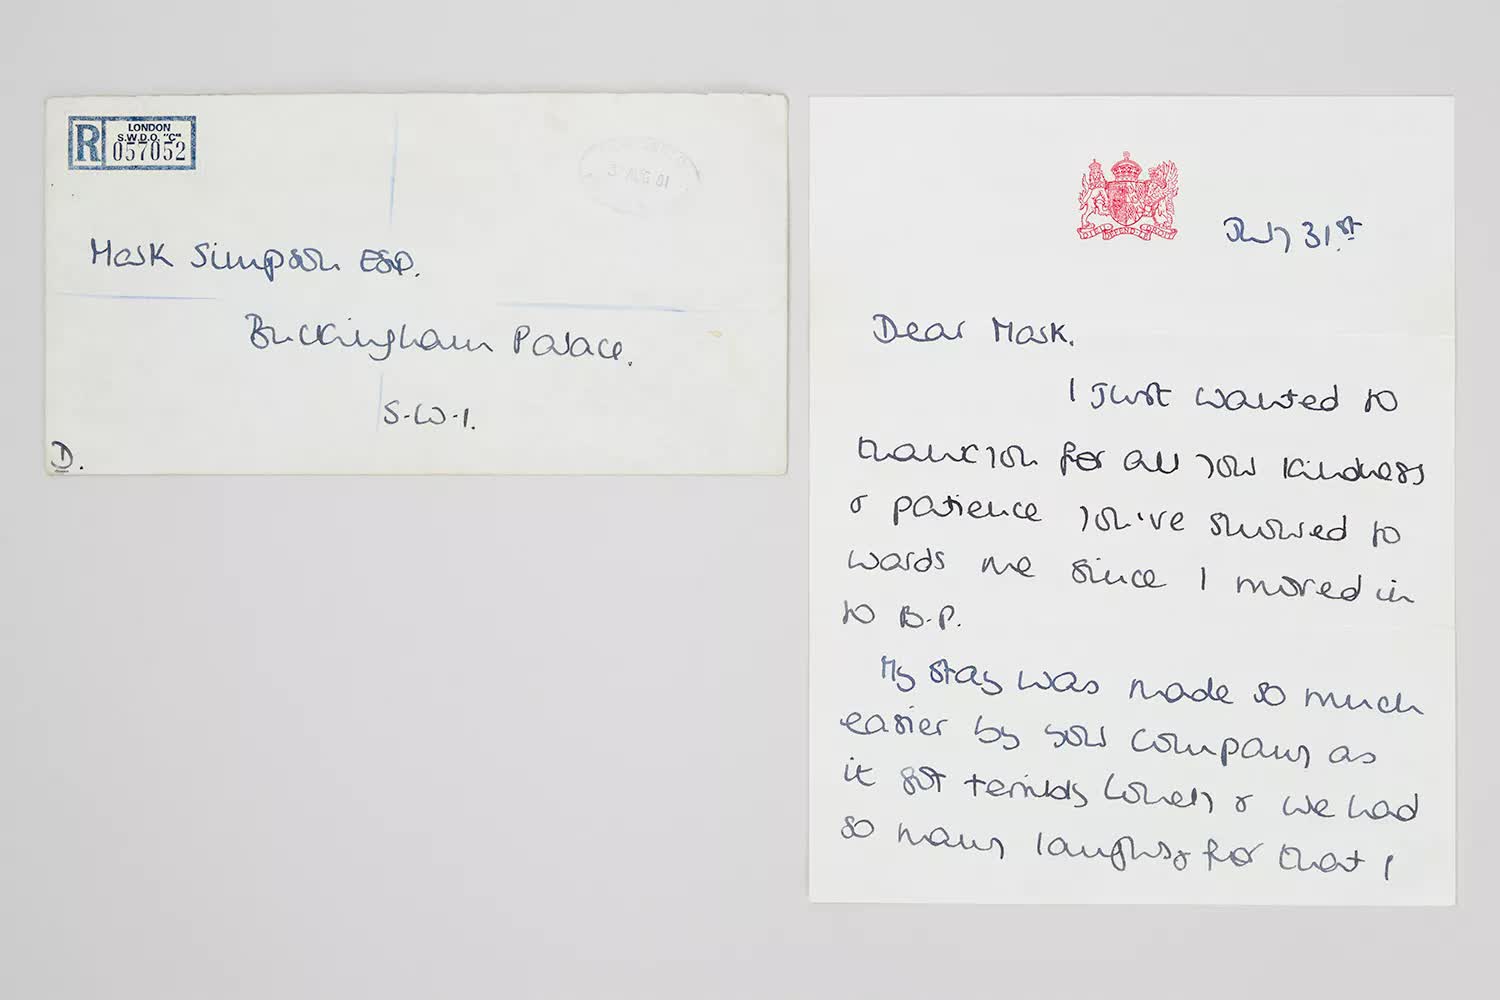 R
LONDON
S.W.D.O. "C"
057052
Mark Simpson ESQ.
Buckingham Palace.
S.W.1.
D.
DIEU ET MON DROIT
July 31.st
Dear Mark.
I Just wanted to
thank you for all your kindness
& patience you've showed to
wards me since I moved in
to B.P.
My stay was made so much
easier by your company as
it got terribly lonely & we had
so many laughs, for that I